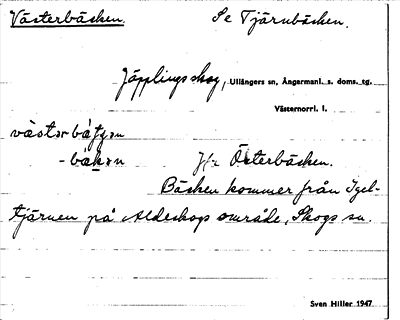 Västerbäcken. Se Tjärnbäcken.
Jäpplingskog, Ullångers sn, Ångermanl. s. doms. tg.
Västernorrl. l.
västər bätʃən
-bäkən Jfr Österbäcken.
Bäcken kommer från Igel-
tjärnen på Aldeskogs område, Skogs sn.
Sven Hiller 1947.